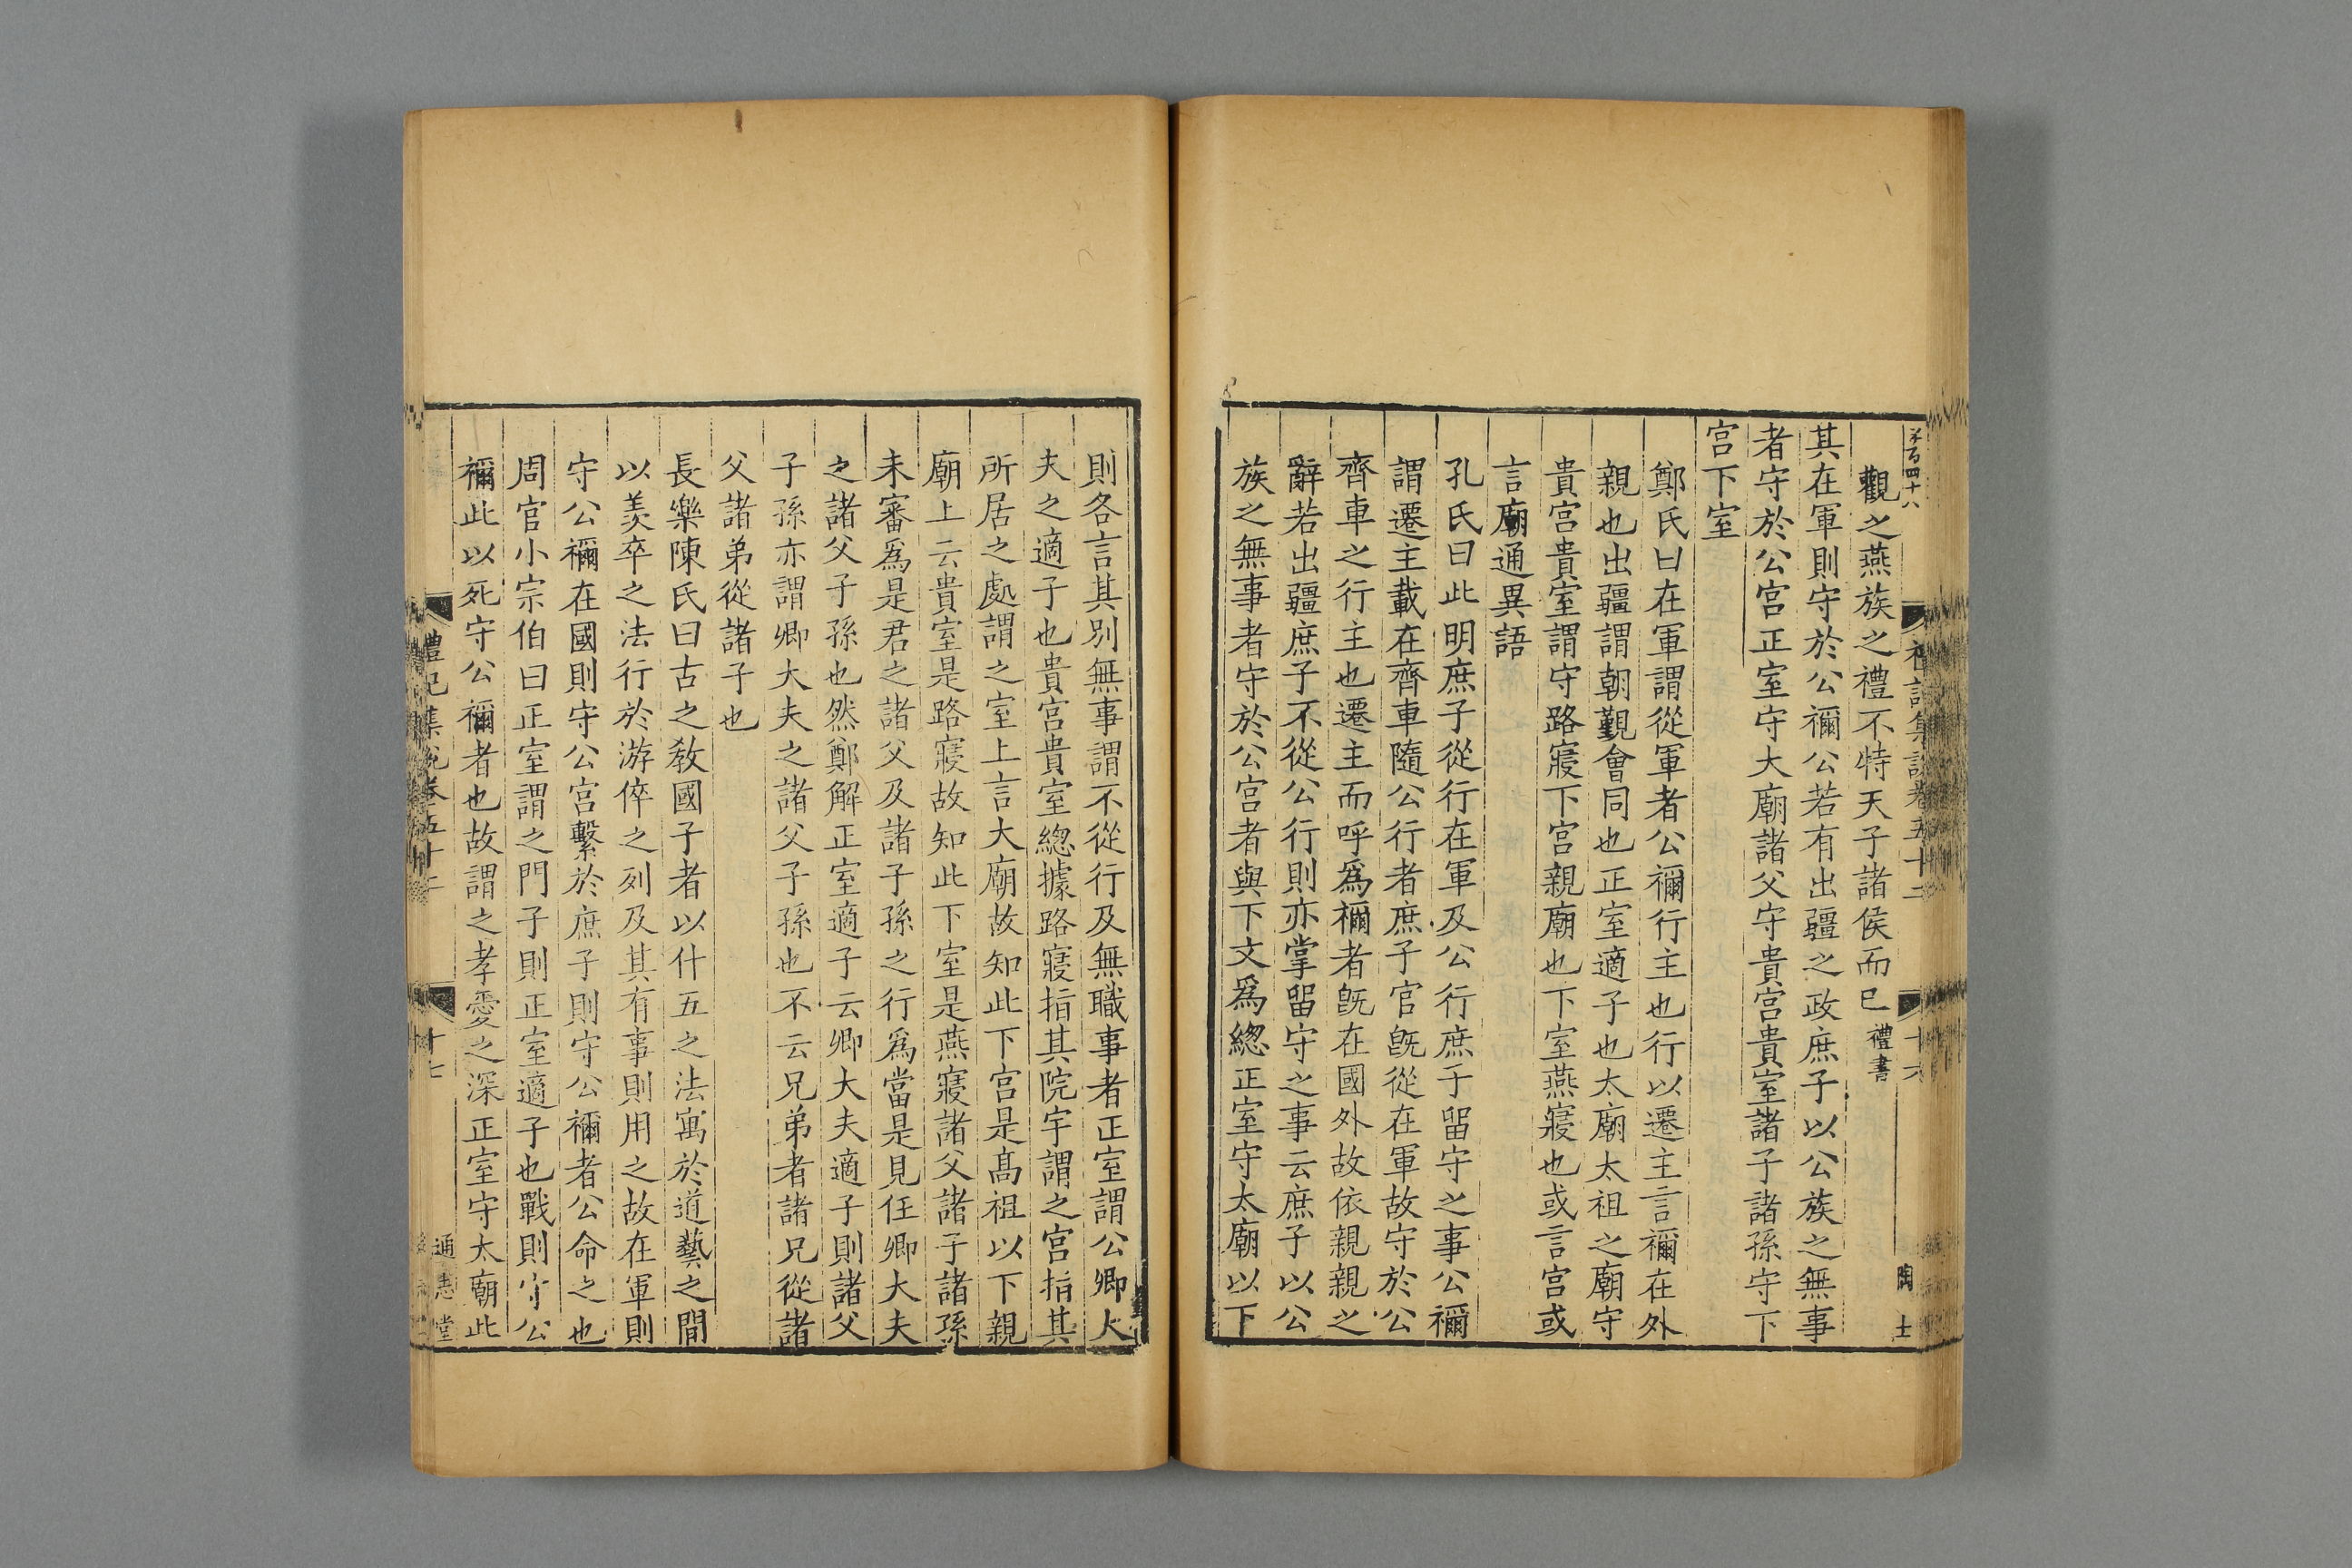 觀之燕族之禮不特天子諸侯而已禮書
其在軍則守於公禰公若有出疆之政庶子以公族之無事
者守於公宮正室守大廟諸父守貴宮貴室諸子諸孫守下
宮下室
鄭氏曰在軍謂從軍者公禰行主也行以遷主言禰在外
親也出疆謂朝覲會同也正室適子也太廟太祖之廟守
貴宮貴室謂守路寢下宮親廟也下室燕寢也或言宮或
言廟通異語
孔氏曰此明庶子從行在軍及公行庶子留守之事公禰
謂遷主載在齊車隨公行者庶子官既從在軍故守於公
齊車之行主也遷主而呼爲禰者既在國外故依親親之
辭若出疆庶子不從公行則亦掌留守之事云庶子以公
族之無事者守於公宮者與下文爲總正室守太廟以下
則各言其別無事謂不從行及無職事者正室謂公卿大
夫之適子也貴宮貴室總據路寢指其院宇謂之宮指其
所居之處謂之室上言大廟故知此下宮是髙祖以下親
廟上云貴室是路寢故知此下室是燕寢諸父諸子諸孫
未審爲是君之諸父及諸子孫之行爲當是見任卿大夫
之諸父子孫也然鄭解正室適子云卿大夫適子則諸父
子孫亦謂卿大夫之諸父子孫也不云兄弟者諸兄從諸
父諸弟從諸子也
長樂陳氏曰古之敎國子者以什五之法寓於道藝之間
以羡卒之法行於游倅之列及其有事則用之故在軍則
守公禰在國則守公宮繫於庶子則守公禰者公命之也
周官小宗伯曰正室謂之門子則正室適子也戰則守公
禰此以死守公禰者也故謂之孝愛之深正室守太廟此
禮記集說卷五十二
十七
通志堂
禮記集說卷五十二
十六
陶士